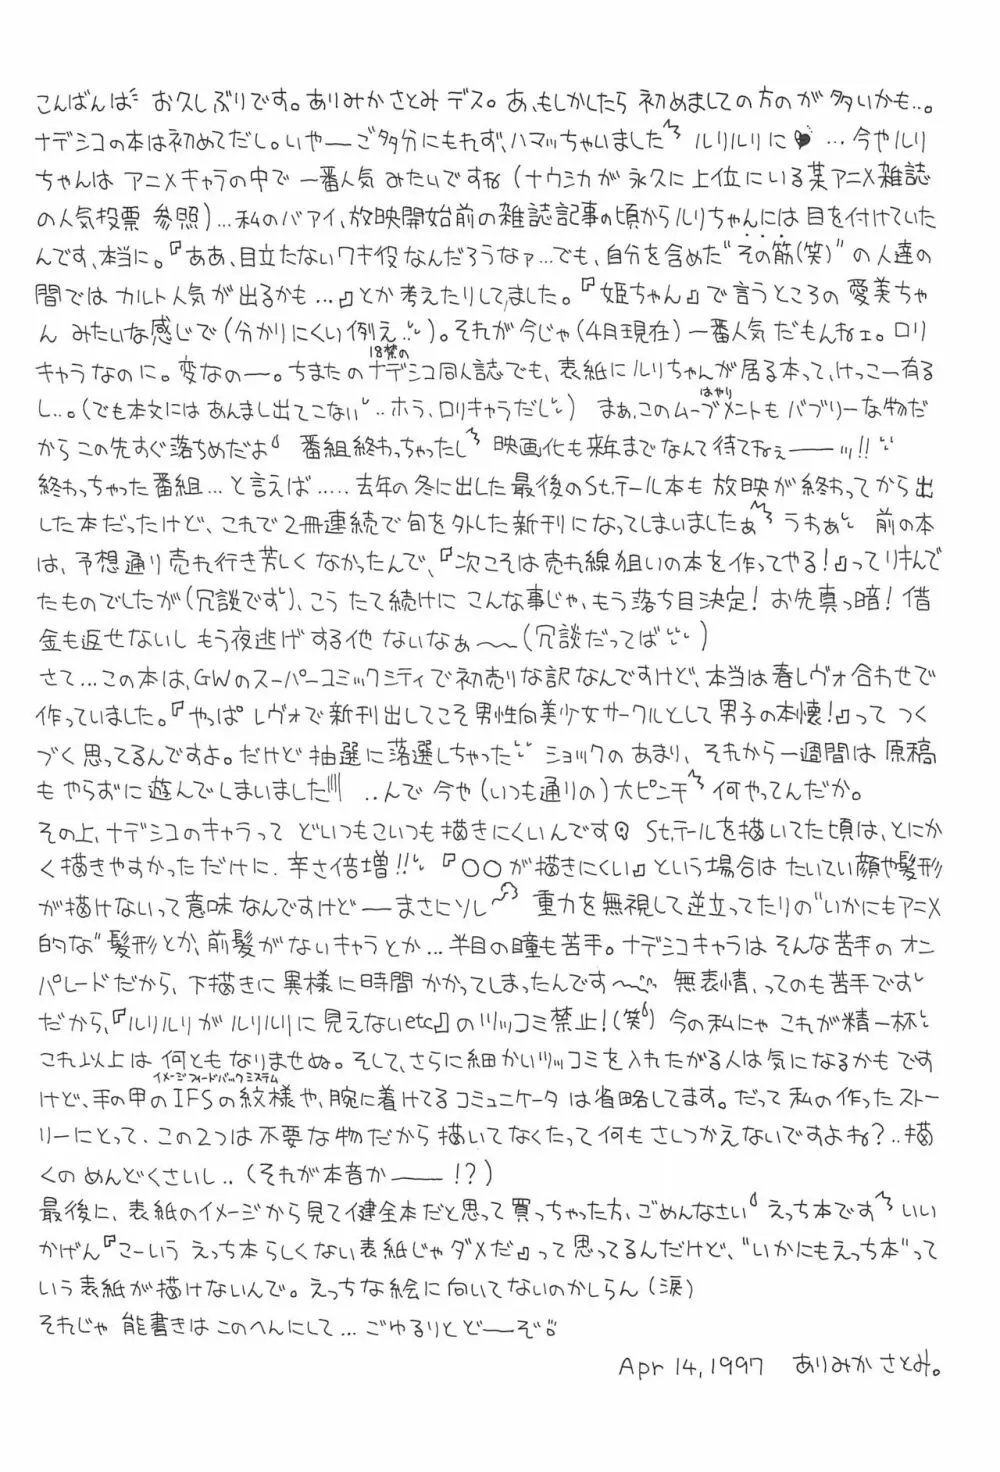 こんばんは お久しぶりです。ありみかさとみデス。あ、もしかしたら 初めましての方のが多いかも..。
ナデシコの本は初めてだし。いやーご多分にもれず、ハマッちゃいました ルリルリに♥ … 今やルリ
ちゃんは アニメキャラの中で 一番人気 みたいですね (ナウシカが 永久に上位にいる某アニメ雑誌
の人気投票 参照)…私のバアイ、放映開始前の雑誌記事の頃からルリちゃんには 目を付けていた
んです、本当に。『ああ、目立たないワキ役なんだろうなァ…でも、自分を含めた"その筋(笑)"の人達の
間では カルト人気が出るかも…』とか考えたりしてました。『姫ちゃん』で言うところの 愛美ちゃ
ん みたいな感じで(分かりにくい例え..)。それが今じゃ(4月現在)一番人気だもんねェ。ロリ
キャラなのに。変なのー。ちまたの18禁のナデシコ同人誌でも、表紙にルリちゃんが居る本って、けっこー有る
し..。(でも本文にはあんまし出てこない ..ホラ、ロリキャラだし) まぁ、このムーブメント(はやり)もバブリーな物だ
からこの先すぐ落ちめだよ 番組終わっちゃったし 映画化も来年までなんて待てねぇーーッ!!
終わっちゃった番組…と言えば….. 去年の冬に出した最後のSt.テール本も 放映が終わってから出
した本だったけど、これで2冊連続で旬を外した新刊になってしまいましたぁ うわぁ 前の本
は、予想通り売れ行き苦しくなかったんで、『次こそは売れ線狙いの本を作ってやる!』ってリキんで
たものでしたが(冗談です)、こう たて続けに こんな事じゃ、もう落ち目決定! お先真っ暗! 借
金も返せないし もう夜逃げする他 ないなぁ～(冗談だってば)
さて…この本は、GWのスーパーコミックシティで初売りな訳なんですけど、本当は春レヴォ合わせで
作っていました。『やっぱ レヴォで新刊出してこそ男性向美少女サークルとして男子の本懐!』って つく
づく思ってるんですよ。だけど抽選に落選しちゃった ショックのあまり、それから一週間は 原稿
もやらずに遊んでしまいました ..んで 今や(いつも通りの)大ピンチ 何やってんだか。
その上、ナデシコのキャラって どいつもこいつも描きにくいんです St.テールを描いてた頃は、とにか
く描きやすかっただけに、辛さ倍増!! 『〇〇が描きにくい』という場合は たいてい顔や髪形
が描けないって意味なんですけどーまさにソレ 重力を無視して逆立ってたりの"いかにもアニメ
的な"髪形とか、前髪がないキャラとか…半目の瞳も苦手。ナデシコキャラは そんな苦手の オン
パレードだから、下描きに異様に時間 かかってしまったんです～ 無表情、ってのも苦手です
だから、『ルリルリがルリルリに見えないetc』のツッコミ禁止!(笑) 今の私にゃ これが精一杯
これ以上は 何ともなりませぬ。そして、さらに細かいツッコミを入れたがる人は気になるかもです
けど、手の甲のIFS(イメージフィードバックシステム)の紋様や、腕に着けてるコミュニケータは省略してます。だって私の作ったストー
リーにとって、この2つは不要な物だから描いてなくたって何もさしつかえないですよね?..描
くのめんどくさいし.. (それが本音かーー!?)
最後に、表紙のイメージから見て健全本だと思って買っちゃった方、ごめんなさい えっち本です いい
かげん『こーいう えっち本らしくない表紙じゃダメだ』って思ってるんだけど、"いかにもえっち本"って
いう表紙が描けないんで。えっちな絵に向いてないのかしらん(涙)
それじゃ 能書きはこのへんにして… ごゆるりとどーぞ
Apr 14,1997 ありみかさとみ。